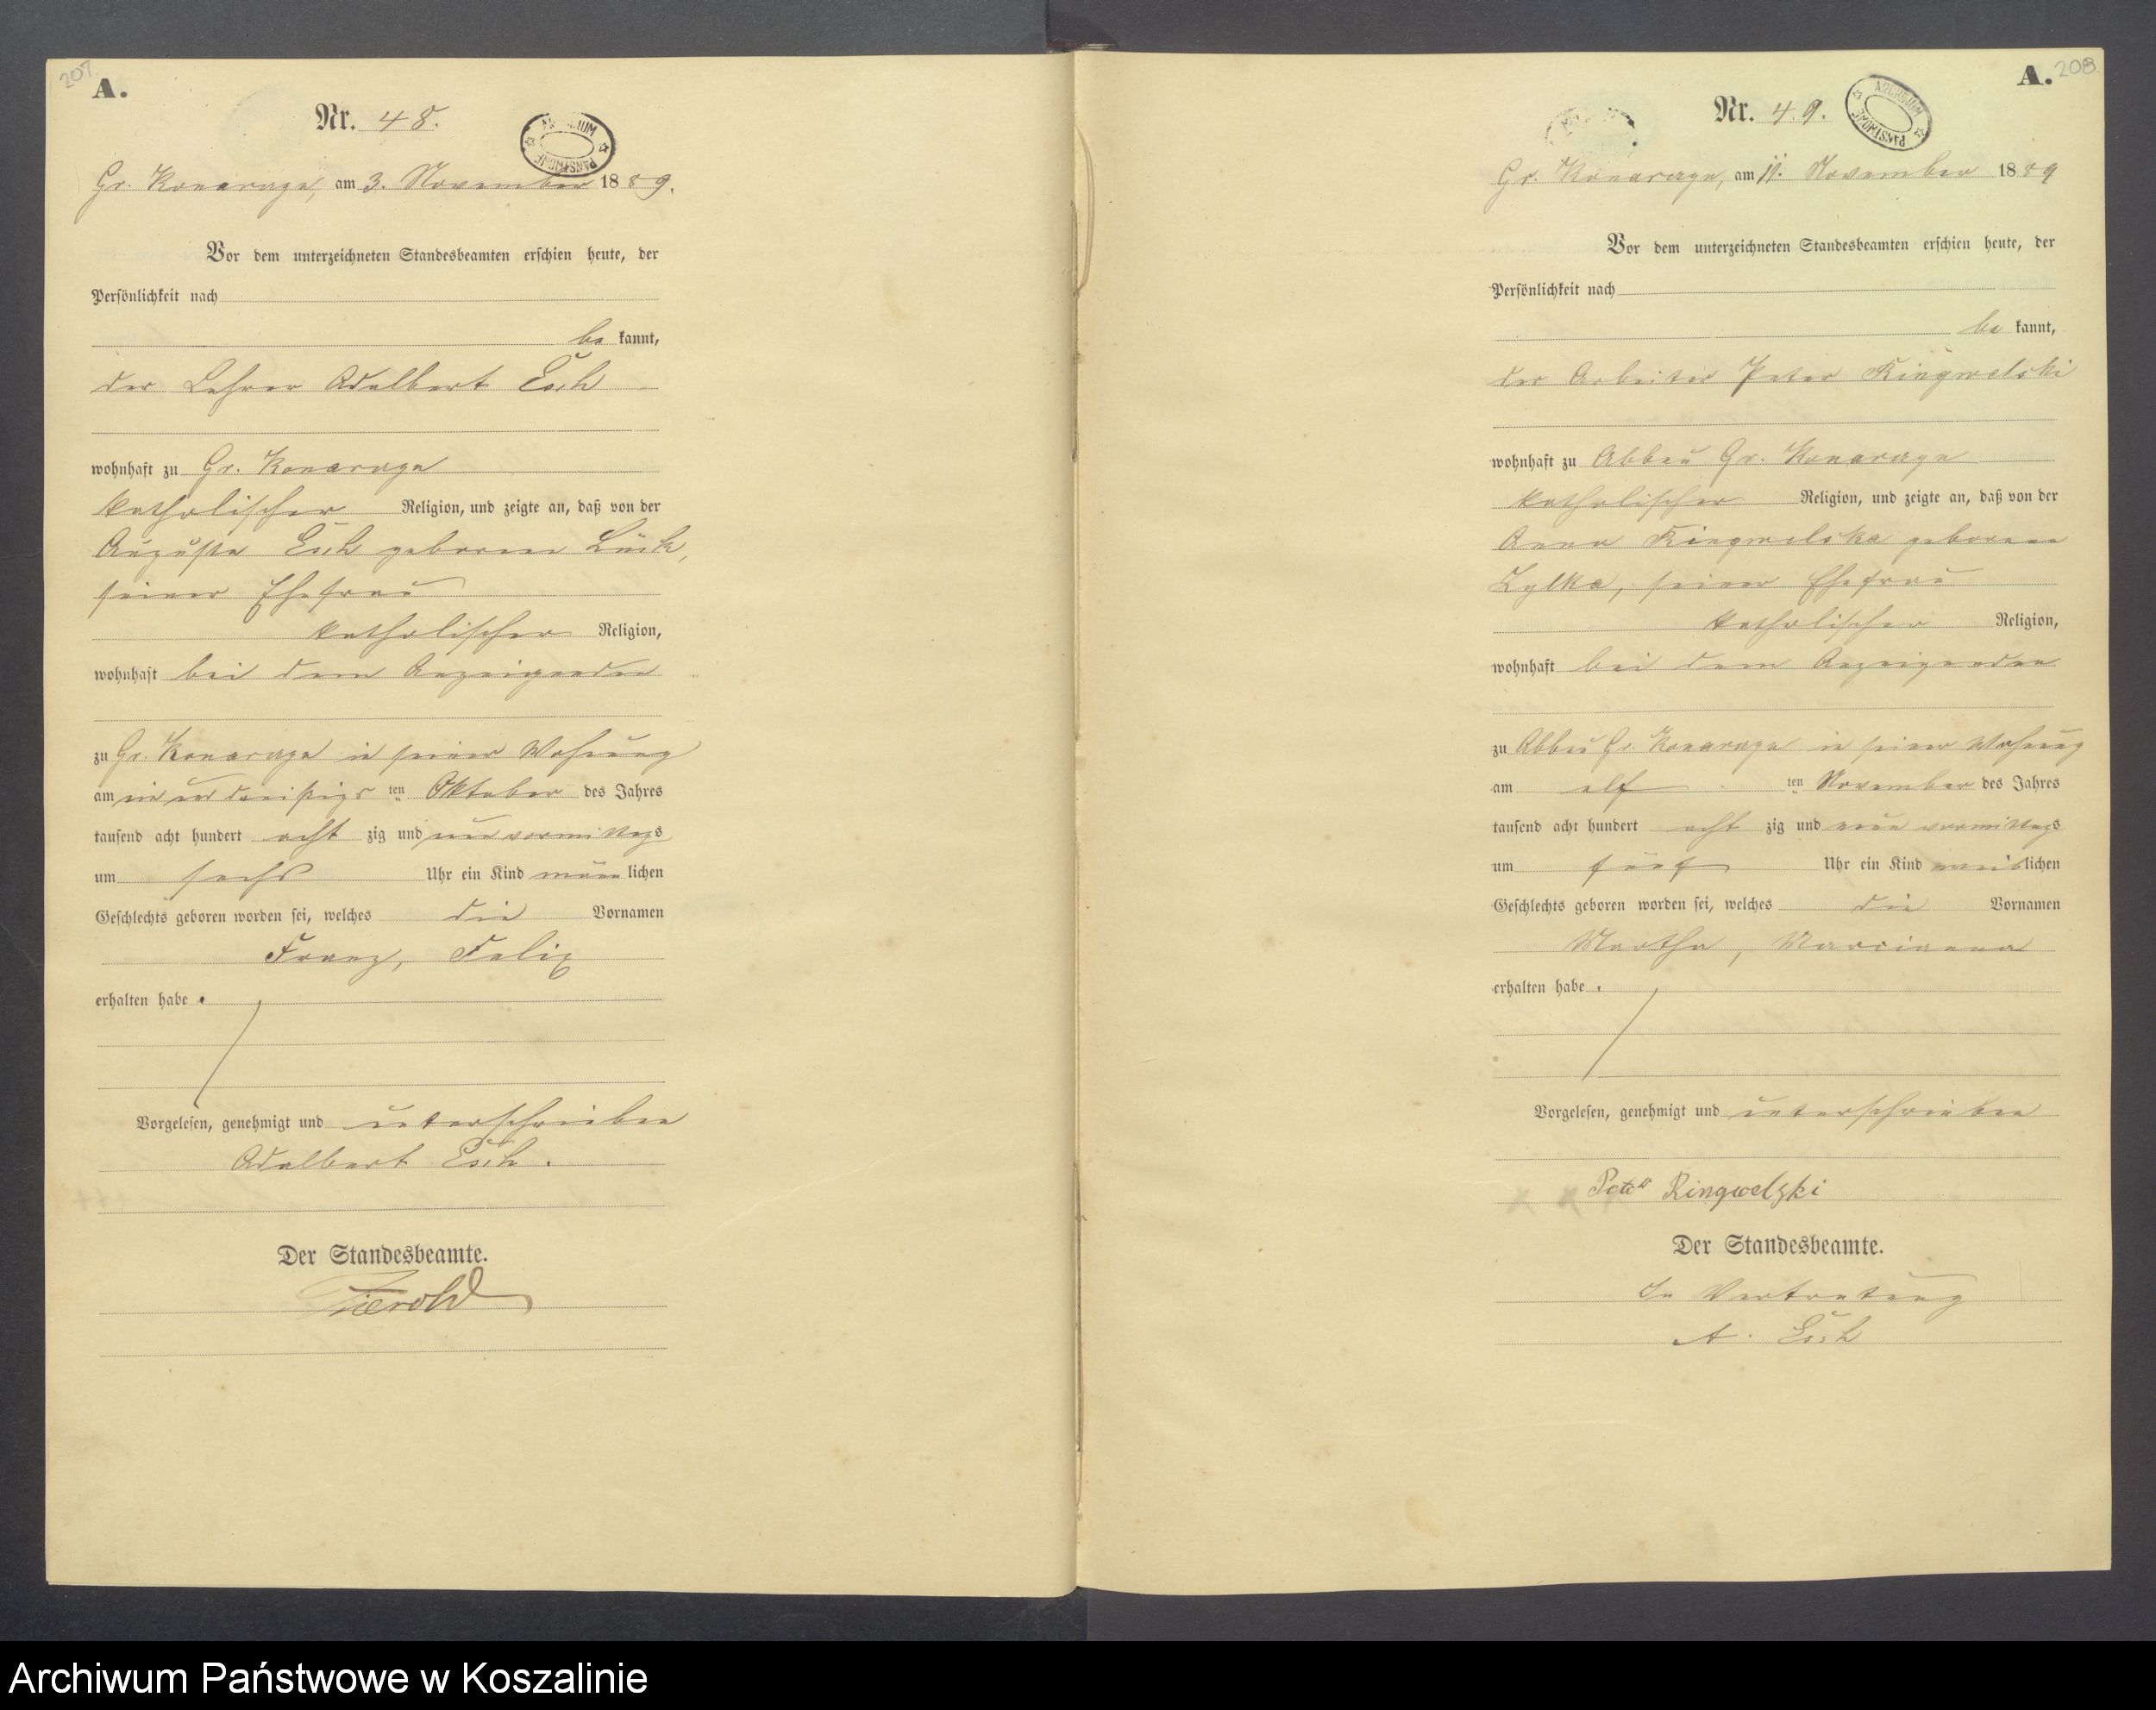 207.
A.
Nr. 48.
ARCHIWUM PAŃSTWOWE
Gr. Konarzyn, am 3. November 1889.
Vor dem unterzeichneten Standesbeamten erschien heute, der
Persönlichkeit nach
be kannt,
der Lehrer Adalbert Esch
wohnhaft zu Gr. Konarzyn
katholischer Religion, und zeigte an, daß von der
Auguste Esch geborene Lück,
seiner Ehefrau
katholischer Religion,
wohnhaft bei dem Anzeigenden
zu Gr. Konarzyn in seiner Wohnung
am ein und dreißigs ten Oktober des Jahres
tausend acht hundert acht zig und neun vormittags
um sechs Uhr ein Kind männ lichen
Geschlechts geboren worden sei, welches die Vornamen
Franz, Felix
erhalten habe.
Vorgelesen, genehmigt und unterschrieben
Adalbert Esch.
Der Standesbeamte.
208.
A.
Nr. 49.
ARCHIWUM PAŃSTWOWE
Gr. Konarzyn, am 11. November 1889
Vor dem unterzeichneten Standesbeamten erschien heute, der
Persönlichkeit nach
be kannt,
der Arbeiter Peter Ringwelski
wohnhaft zu Abbau Gr. Konarzyn
katholischer Religion, und zeigte an, daß von der
Anna Ringwelska geborene
Zylka, seiner Ehefrau
katholischer Religion,
wohnhaft bei dem Anzeigenden
zu Abbau Gr. Konarzyn in seiner Wohnung
am elf ten November des Jahres
tausend acht hundert acht zig und neun vormittags
um fünf Uhr ein Kind weib lichen
Geschlechts geboren worden sei, welches die Vornamen
Martha, Marcianna
erhalten habe.
Vorgelesen, genehmigt und unterschrieben
Peter Ringwelzki
Der Standesbeamte.
In Vertretung
A. Esch
Archiwum Państwowe w Koszalinie